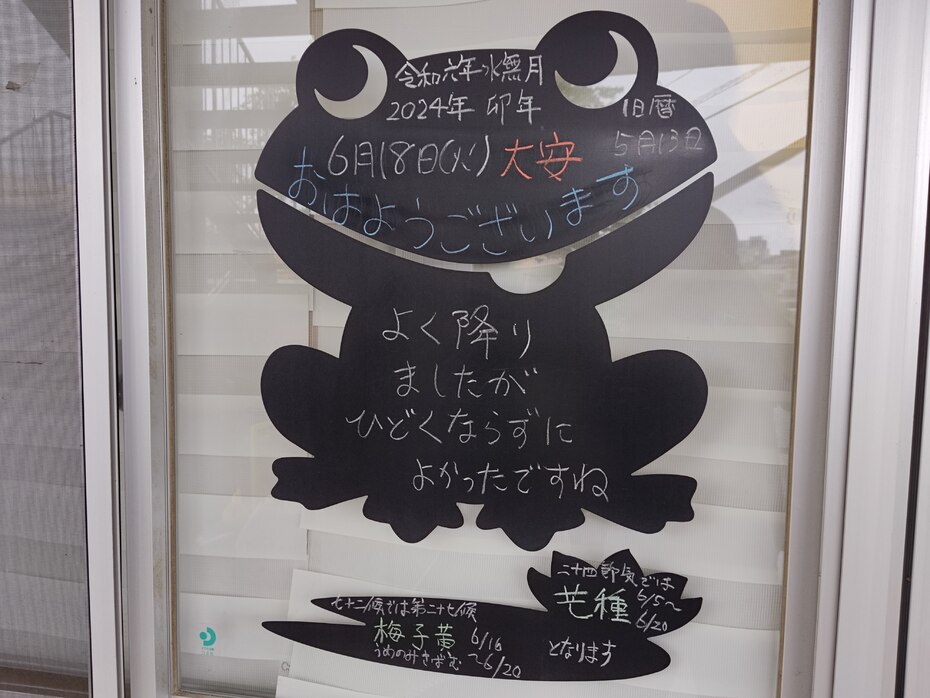 令和六年水無月
2024年 卯年
旧暦
5月13日
6月18日(火) 大安
おはようございます
よく降り
ましたが
ひどくならずに
よかったですね
二十四節気では
芒種 6/5〜
6/20
七十二候では第二十七候
梅子黄 6/16
うめのみきばむ 〜6/20
となります